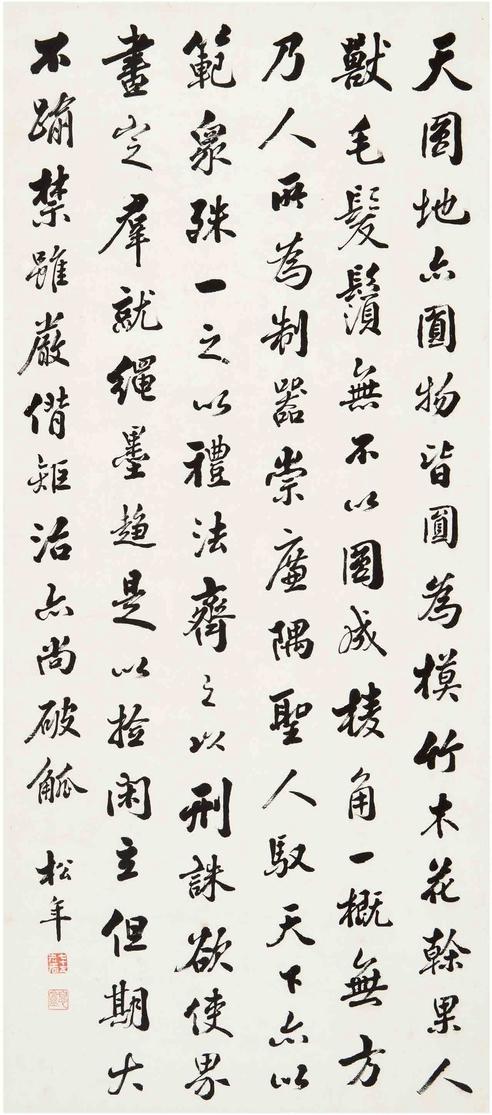 天圓地亦圓物皆圓為模竹木花幹果人
獸毛髮鬚無不以圓成棱角一概無方
乃人所為制器崇廉隅聖人馭天下亦以
範眾殊一之以禮法齊之以刑誅欲使界
畫定羣就繩墨趨是以撿閑主但期大
不踰禁雖嚴偝矩治亦尚破觚
松年